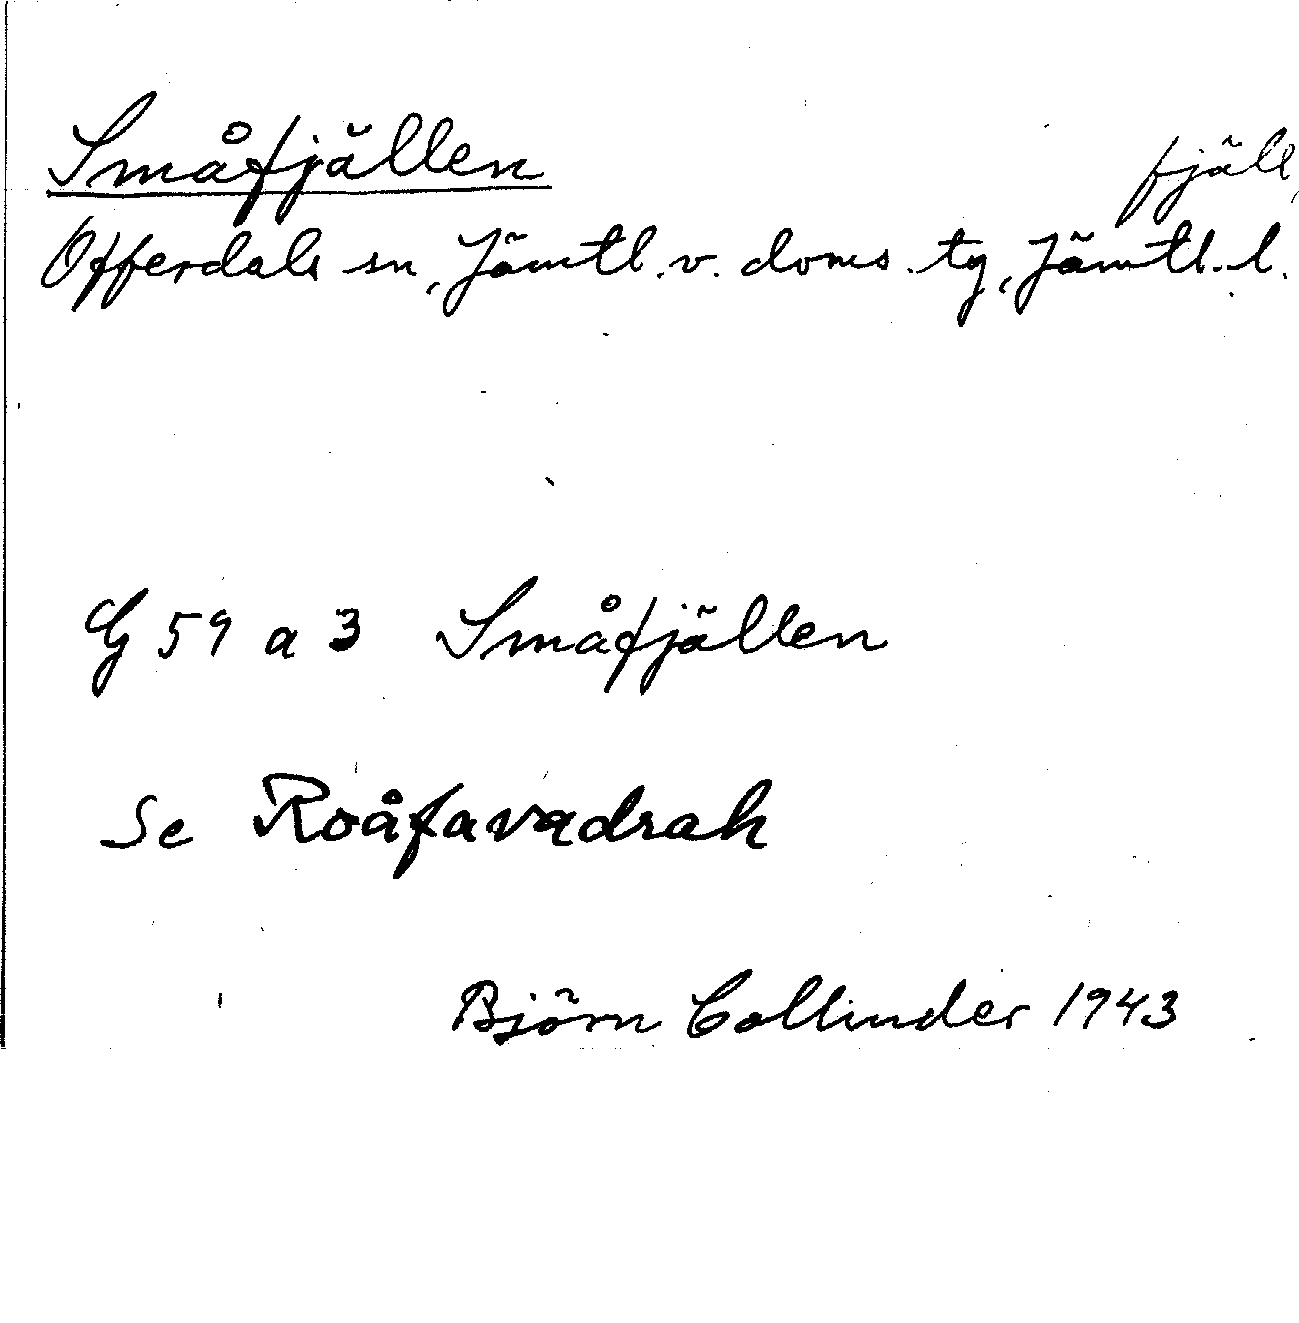 Småfjällen fjäll
Offerdals sn, Jämtl. v. doms. tg, Jämtl. l.
G 59 a 3 Småfjällen
Se Roåfavadrah
Björn Collinder 1943